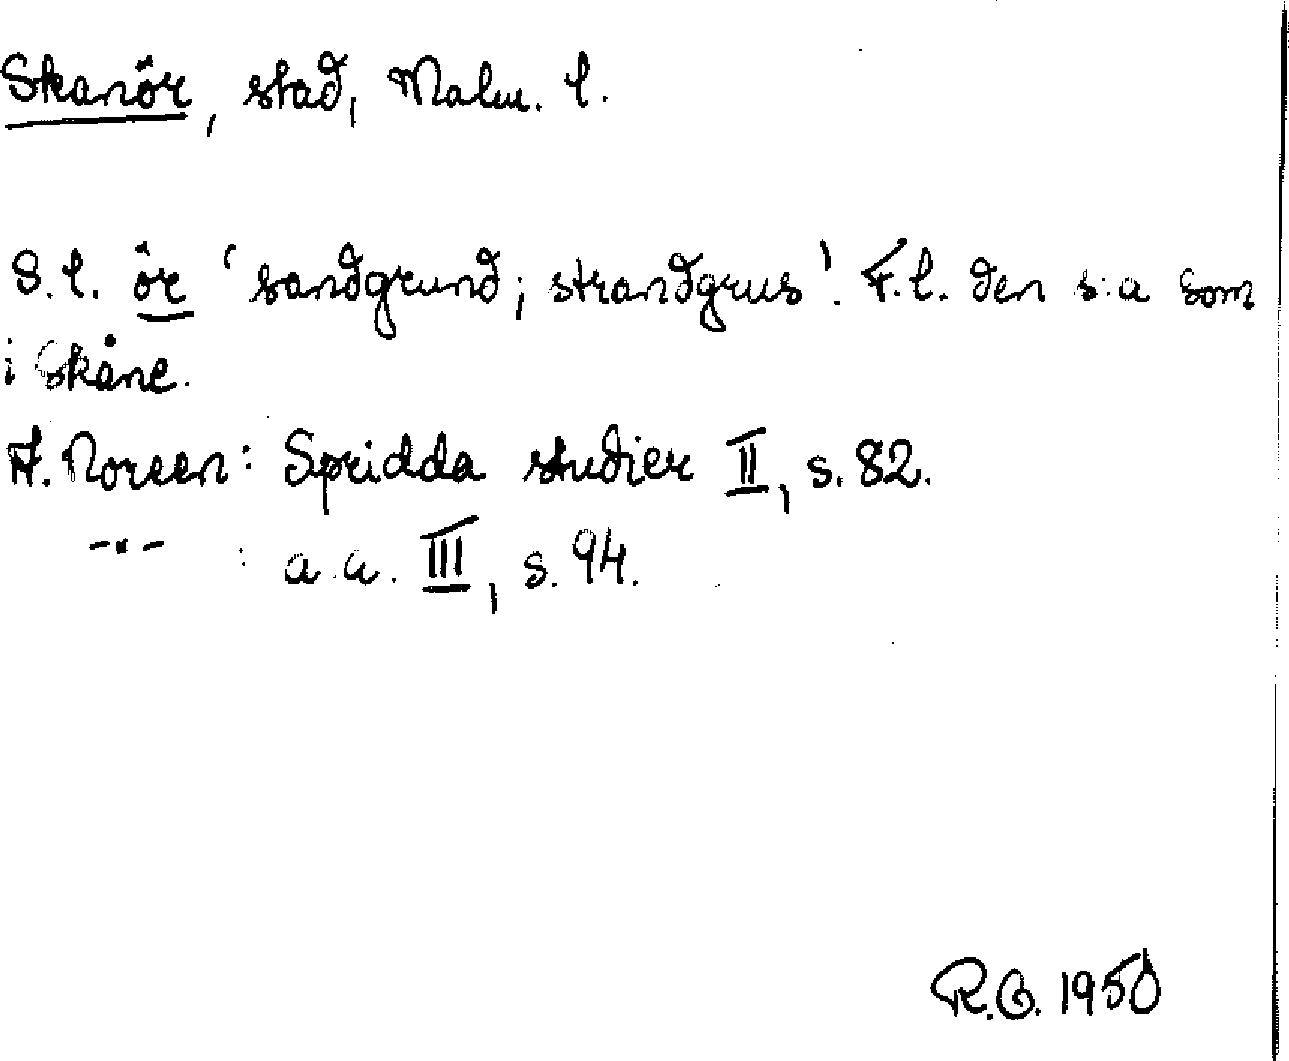 Skanör, stad, Malm. l.
S.l. ör 'sandgrund; strandgrus'. F.l. den s:a som
i Skåne.
A. Noreen: Spridda studier II, s. 82.
-"- : a.a. III, s. 94.
R.G. 1950